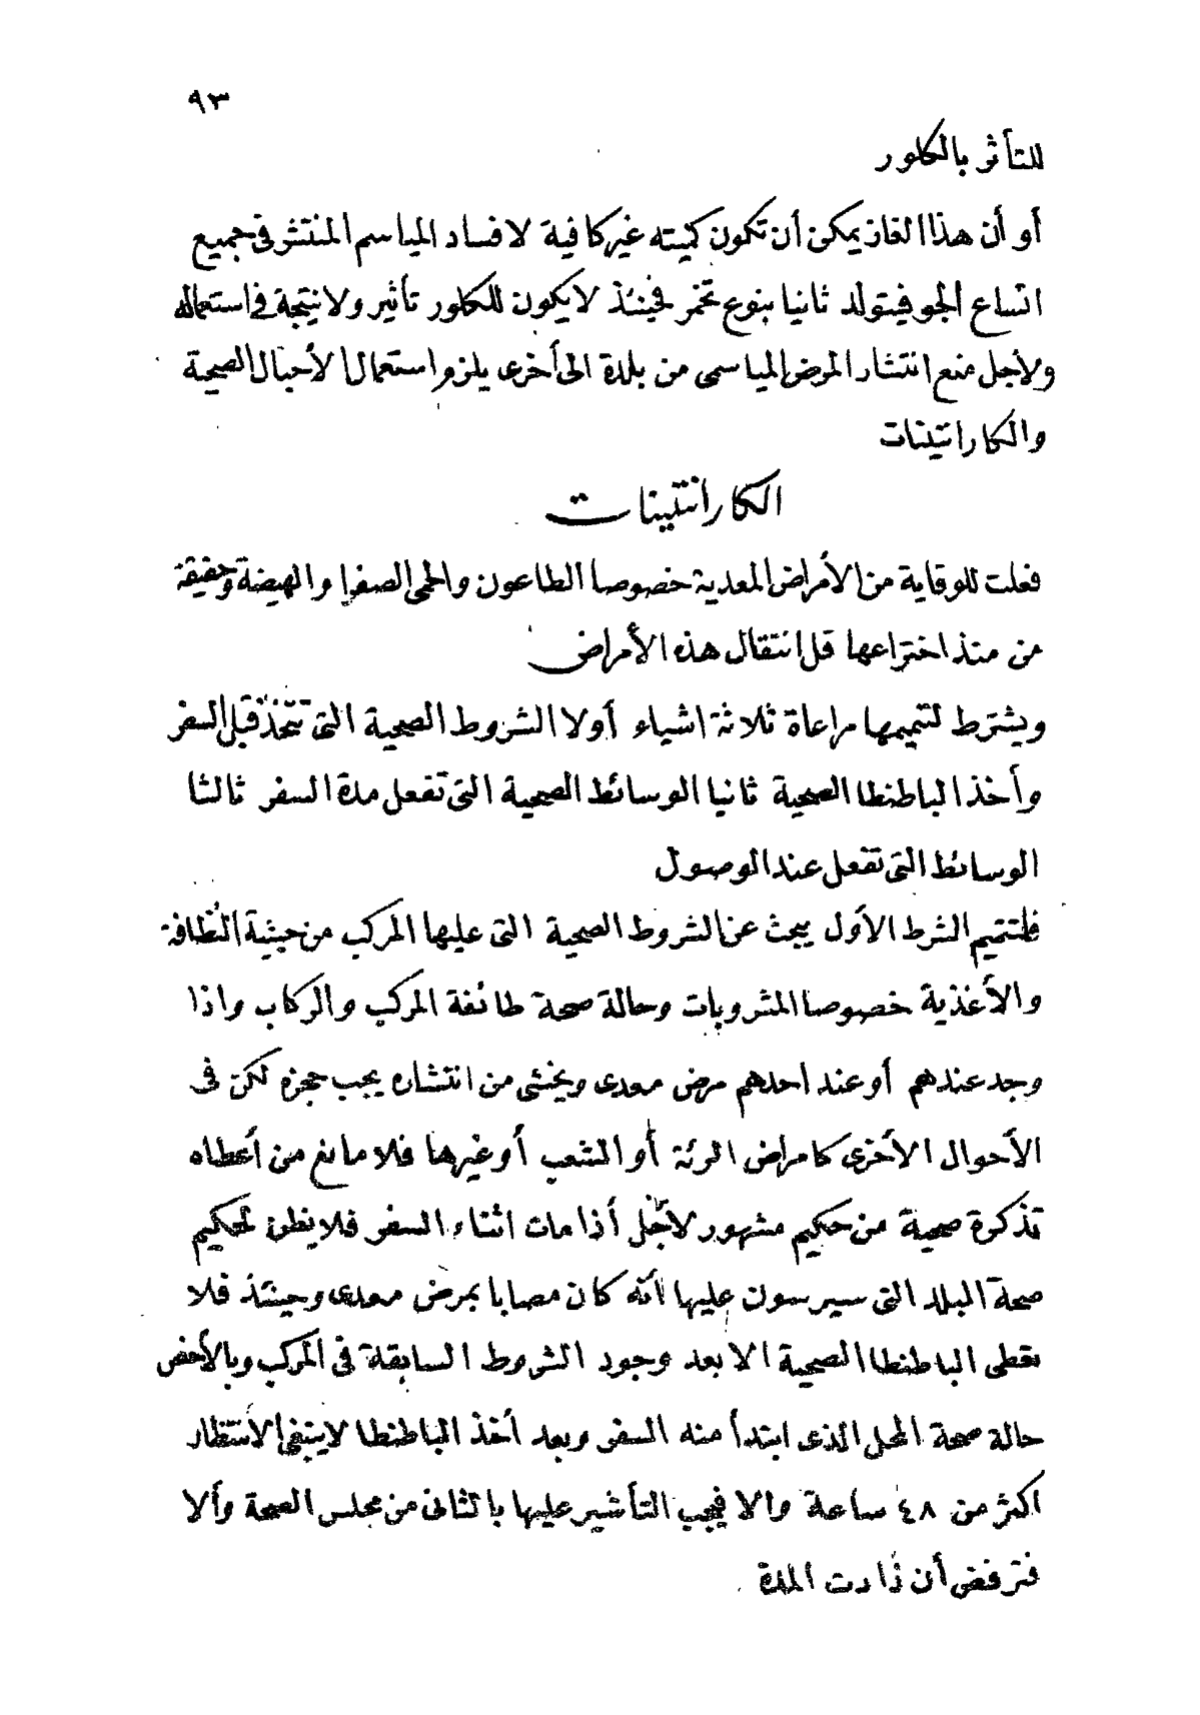 ٩٣
للتأثر بالكلور
أو أن هذا الغاز يمكن أن تكون كميته غير كافية لافساد المياسم المنتشر فى جميع
اتساع الجو فيتولد ثانيا بنوع تخمر فحينئذ لا يكون للكلور تأثير ولا نتيجة فى استعماله
ولأجل منع انتشار المرض المياسمى من بلدة الى أخرى يلزم استعمال الأحبال الصحية
والكارانتينات
الكارانتينات
فعلت للوقاية من الأمراض المعدية خصوصا الطاعون والحمى الصفرا والهيضة وحقيقة
من منذ اختراعها قل انتقال هذه الأمراض
ويشترط لتتميمها مراعاة ثلاثة اشياء أولا الشروط الصحية التى تتخذ قبل السفر
وأخذ الباطنطا الصحية ثانيا الوسائط الصحية التى تفعل مدة السفر ثالثا
الوسائط التى تفعل عند الوصول
فلتتميم الشرط الأول يبحث عن الشروط الصحية التى عليها المركب من حيثية النظافة
والأغذية خصوصا المشروبات وحالة صحة طائفة المركب والركاب واذا
وجد عندهم أو عند احدهم مرض معدى ويخشى من انتشاره يجب حجزه لكن فى
الأحوال الأخرى كامراض الرئة أو الشعب أو غيرها فلا مانع من أعطاه
تذكرة صحية من حكيم مشهور لأجل أذا مات اثناء السفر فلا يظن لحكيم
صحة البلد التى سيرسون عليها أنه كان مصابا بمرض معدى وحينئذ فلا
تعطى الباطنطا الصحية الا بعد وجود الشروط السابقة فى المركب وبالأخص
حالة صحة المحل الذى ابتدأ منه السفر وبعد أخذ الباطنطا لا ينبغى الانتظار
اكثر من ٤٨ ساعة والا فيجب التأشير عليها بالثانى من مجلس الصحة وألا
فترفض أن زادت المدة